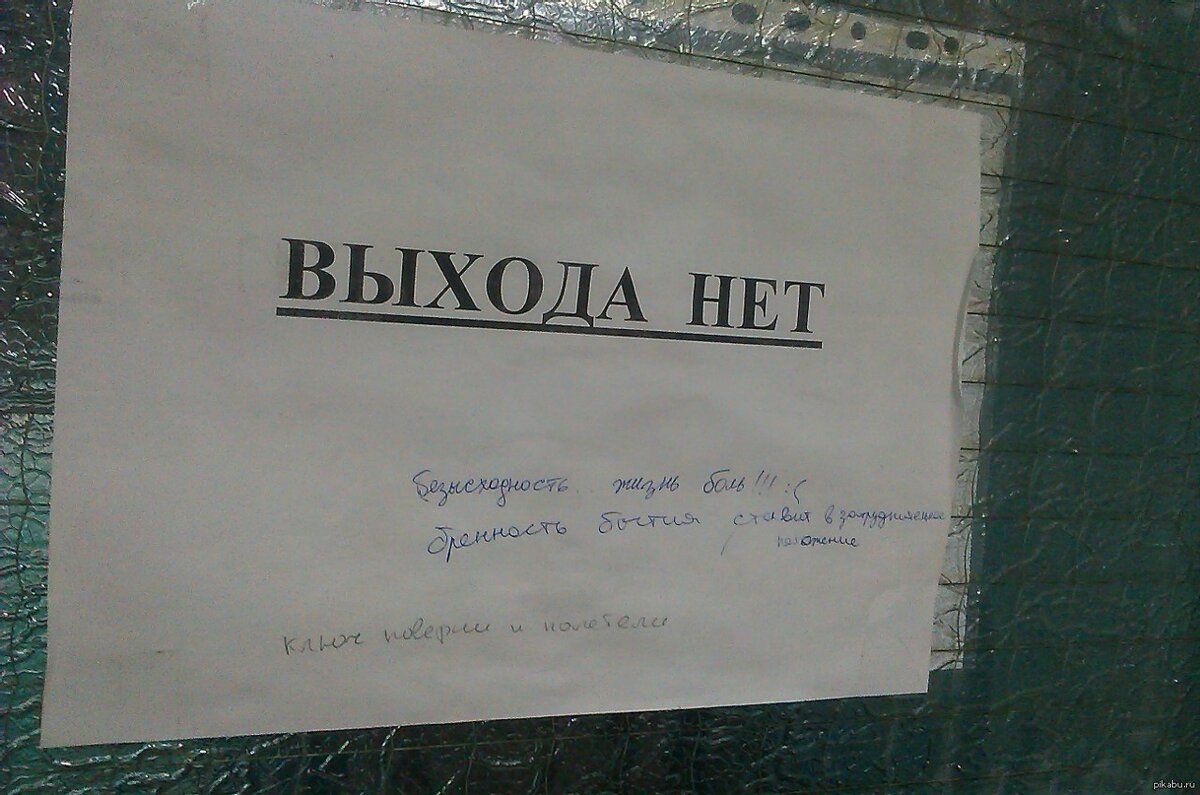 ВЫХОДА НЕТ
безысходность.. жизнь боль!!! :(
бренность бытия ставит в затруднительное
положение
ключ поверни и полетели
pikabu.ru